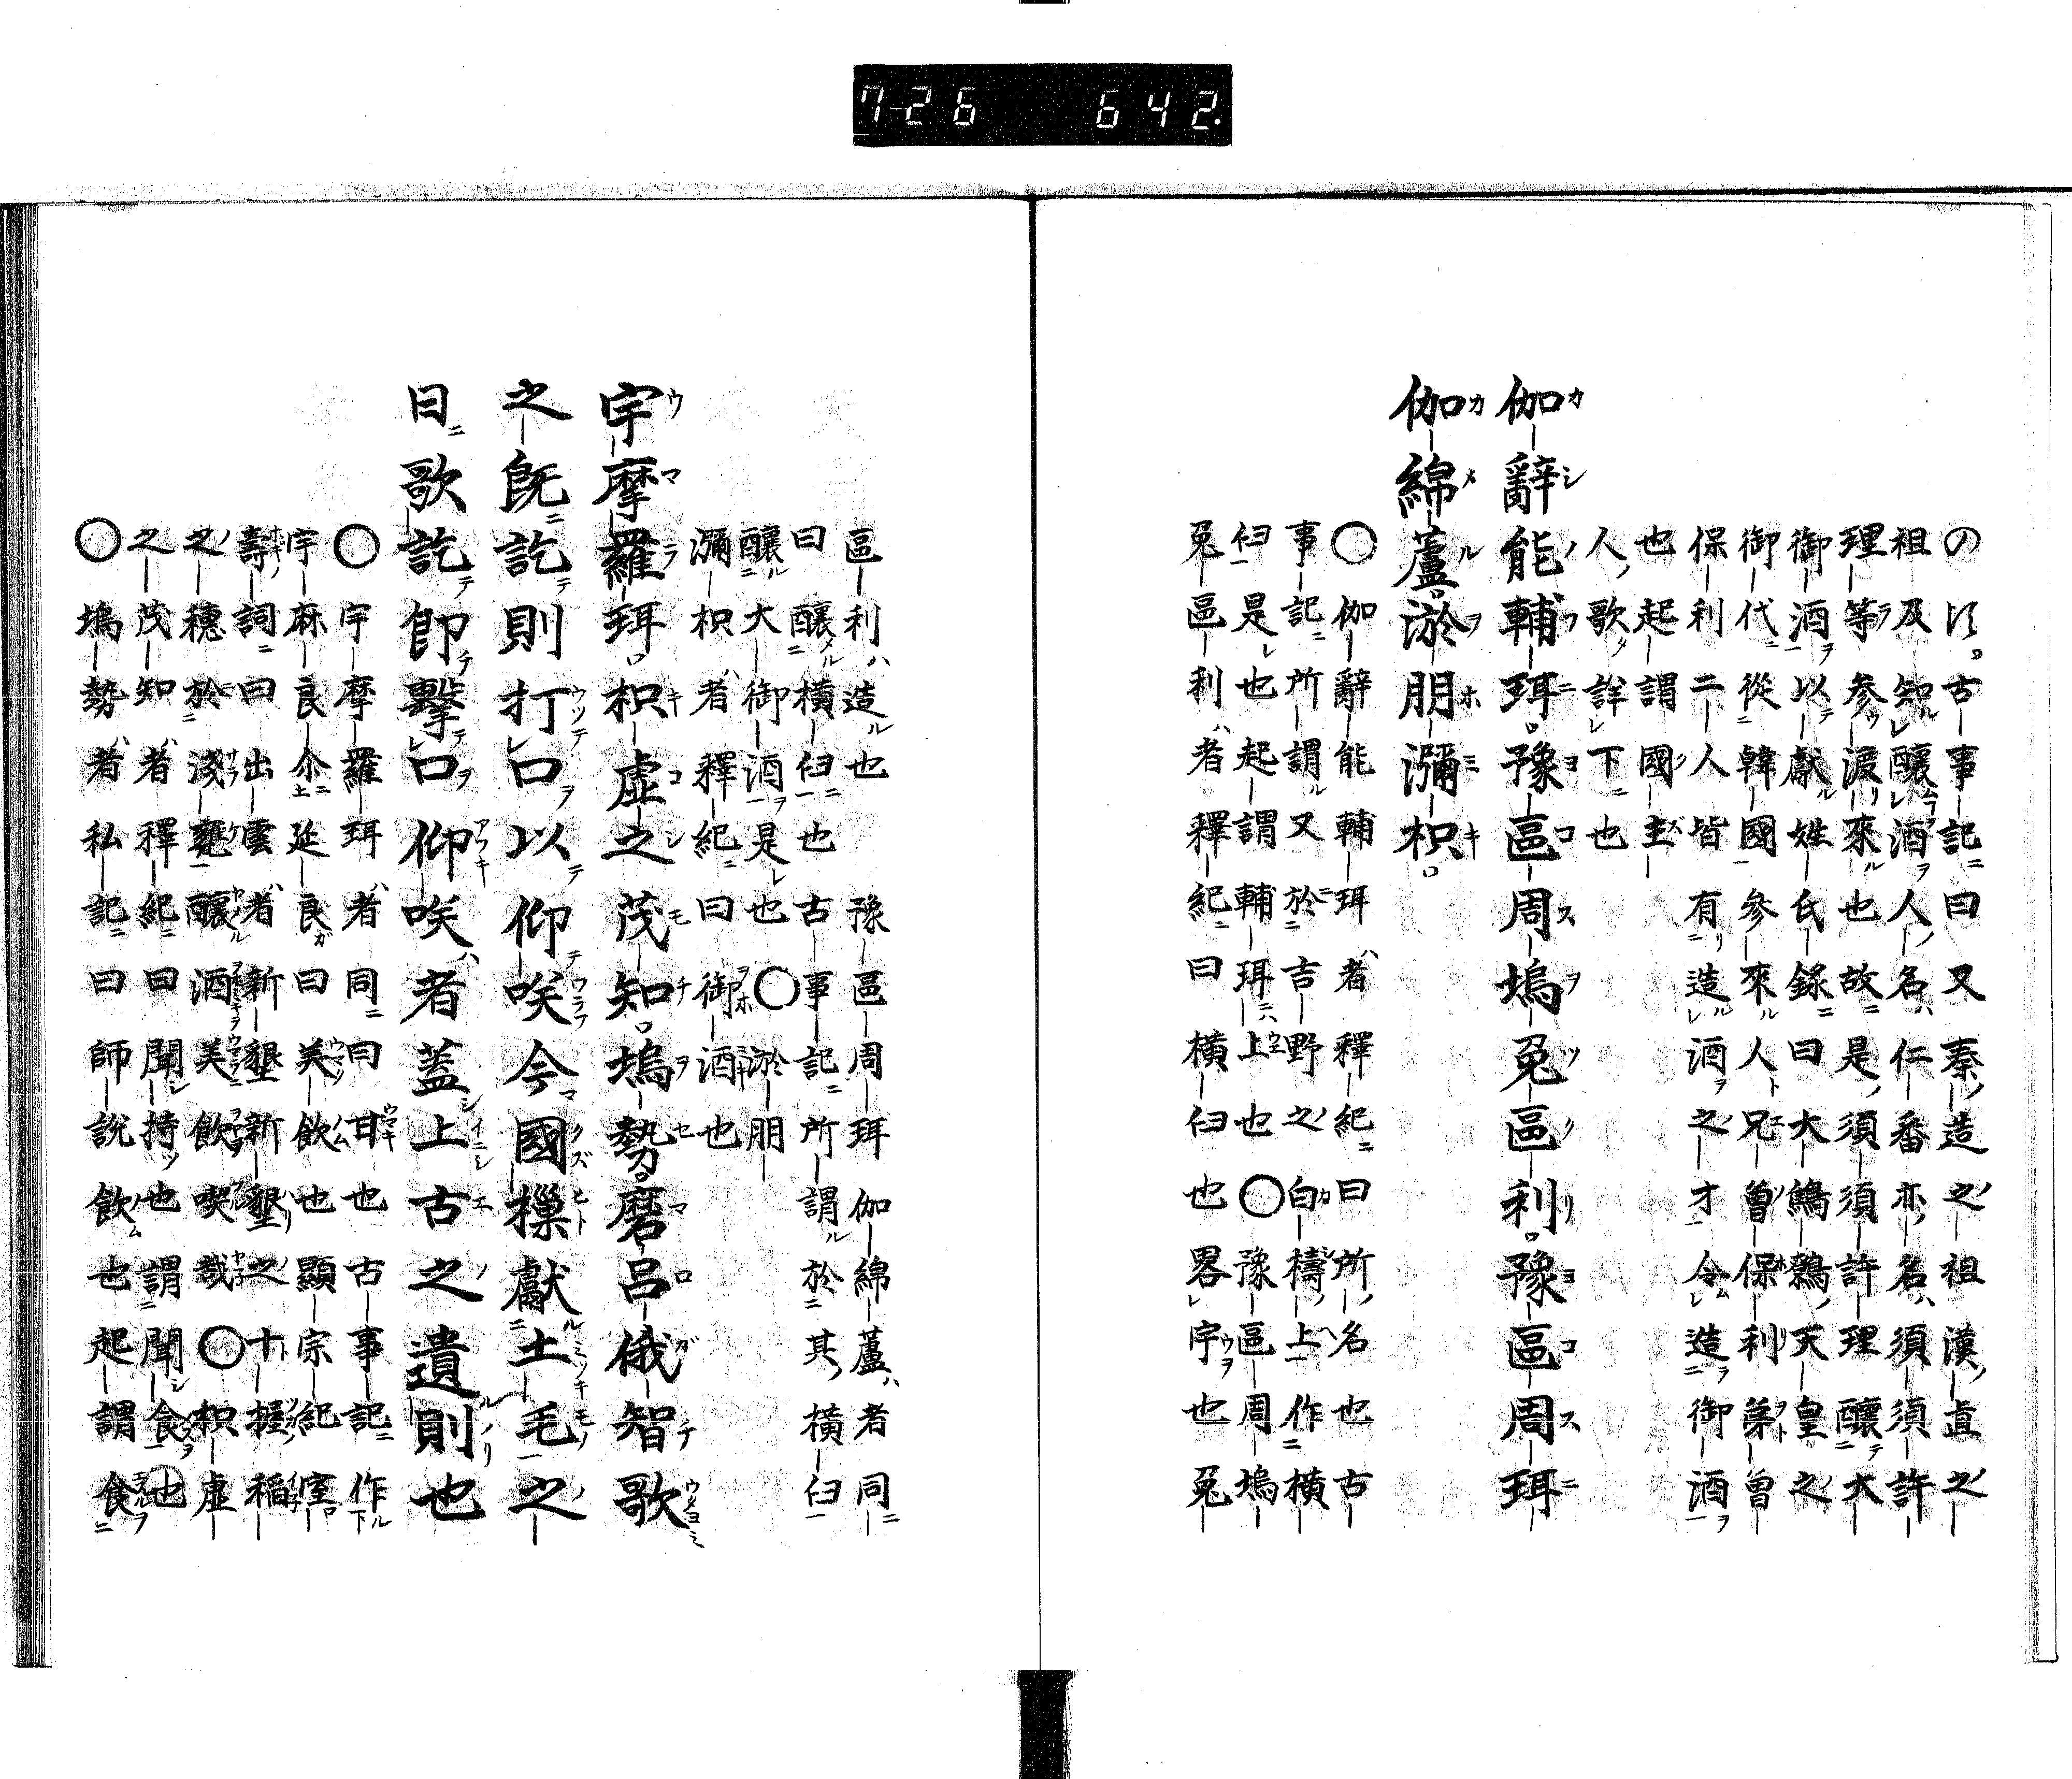 7-26 642.
の注。古事記曰又秦造之祖漢直之
祖及知釀酒人名仁番亦名須須許
理等参渡來也故是須須許理釀大
御酒以獻姓氏錄曰大鷦鷯天皇之
御代從韓國參來人兄曾保利弟曾
保利二人皆有造酒之才令造御酒
也起謂國主
人歌詳下也
伽辭能輔珥豫區周塢兎區利豫區周珥
伽綿蘆淤朋瀰枳
〇伽辭能輔珥者釋紀曰所名也古
事記所謂又於吉野之白檮上作橫
臼是也起謂輔珥上也〇豫區周塢
兎區利者釋紀曰橫臼也畧宇也兎
區利造也 豫區周珥伽綿蘆者同
曰釀橫臼也古事記所謂於其橫臼
釀大御酒是也〇淤朋
瀰枳者釋紀曰御酒也
宇摩羅珥枳虛之茂知塢勢磨呂俄智歌
之既訖則打口以仰咲今國樔獻土毛之
日歌訖卽擊口仰咲者蓋上古之遺則也
〇宇摩羅珥者同曰甘也古事記作
宇麻良尒延良曰美飲也顯宗紀室
壽詞曰出雲者新墾新墾之十握稻
之穗於淺甕釀酒美飲喫哉〇枳虛
之茂知者釋紀曰聞持也謂聞食也
〇塢勢者私記曰師說飲也起謂食